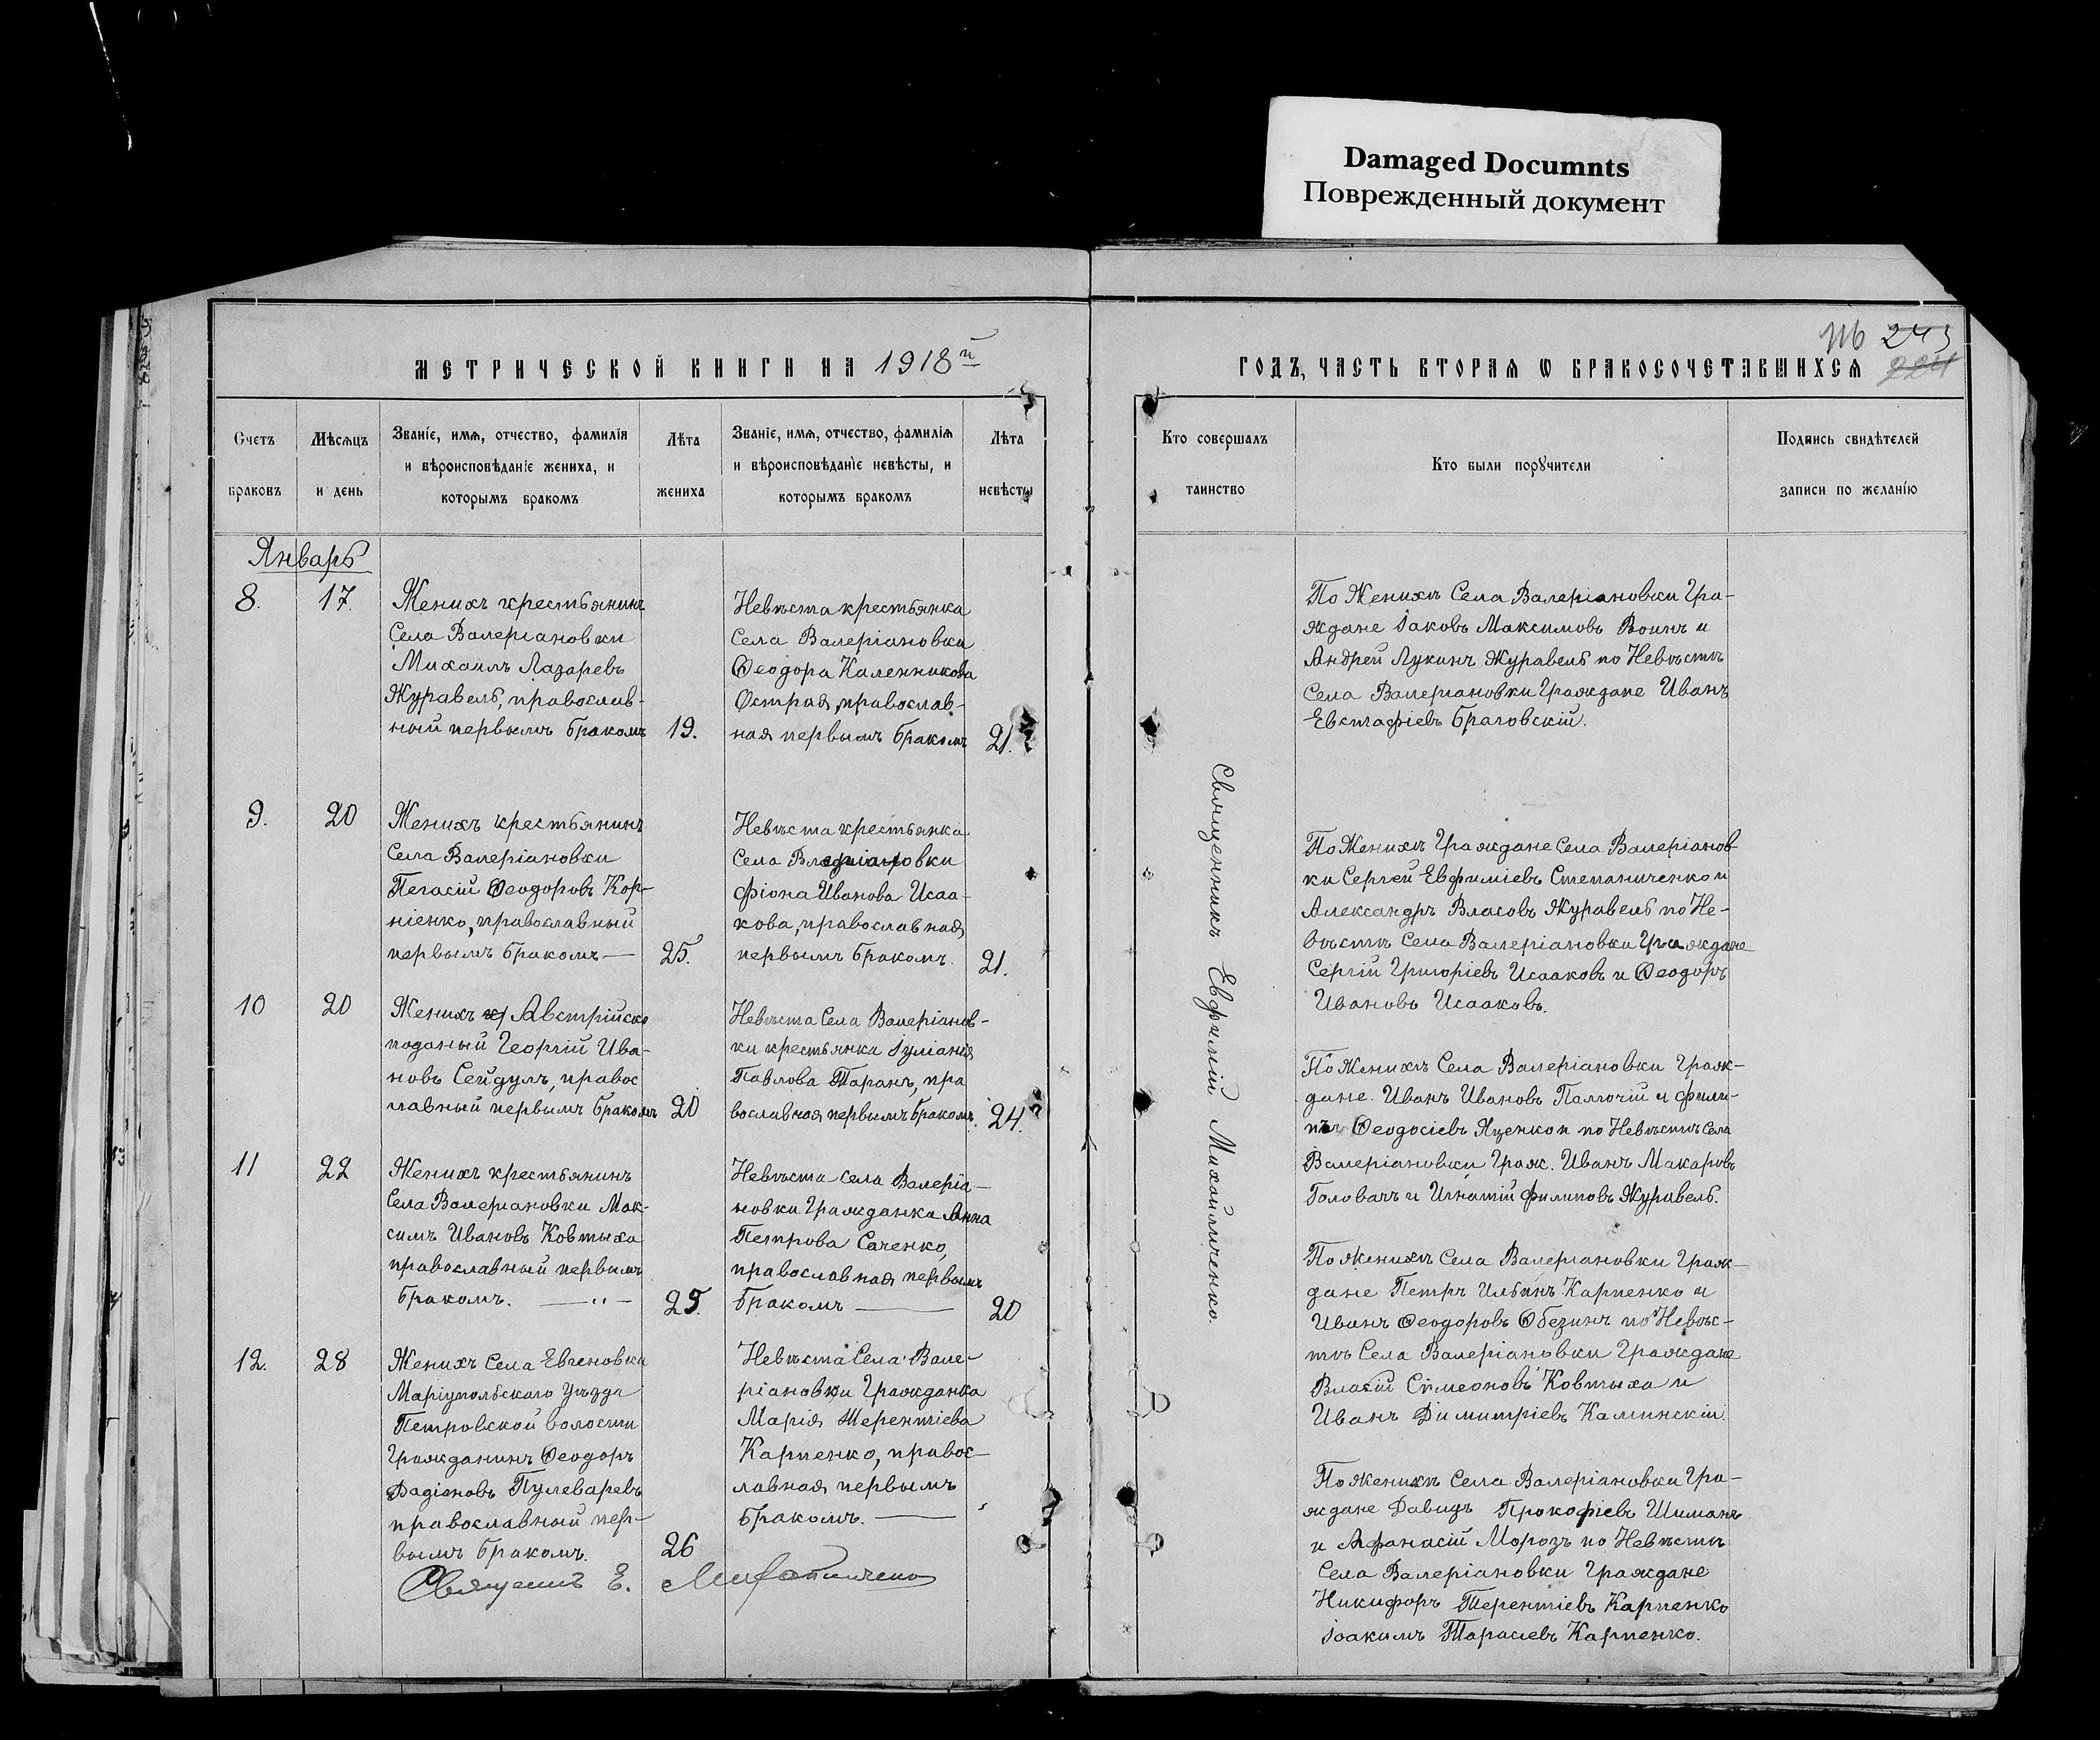 Damaged Documnts
Поврежденный документ
МЕТРИЧЕСКОЙ КНИГИ НА 1918й
ГОДЪ, ЧАСТЬ ВТОРАЯ Ѡ БРАКОСОЧЕТАВШИХСЯ
116 243
224
Счетъ браковъ
Мѣсяцъ и день
Званіе, имя, отчество, фамилія
и вѣроисповѣданіе жениха, и
которымъ бракомъ
Лѣта жениха
Званіе, имя, отчество, фамилія
и вѣроисповѣданіе невѣсты, и
которымъ бракомъ
Лѣта невѣсты
Кто совершалъ
таинство
Кто были порꙋчители
Подпись свидѣтелей
записи по желанію
Январь
8. 17.
Женихъ крестьянинъ
Села Валеріановки
Михаилъ Лазаревъ
Журавель, православ-
ный первымъ бракомъ 19.
Невѣста крестьянка
Села Валеріановки
Ѳеодора Каленникова
Острая, православ-
ная первымъ бракомъ 21.
По Женихѣ Села Валеріановки Гра-
ждане Іаковъ Максимовъ Воинъ и
Андрей Лукинъ Журавель по Невѣстѣ
Села Валеріановки Граждане Иванъ
Евстафіевъ Браговскій.
9. 20
Женихъ крестьянинъ
Села Валеріановки
Пегасій Ѳеодоровъ Кор-
ніенко, православный
первымъ бракомъ — 25.
Невѣста крестьянка
Села
фіона Иванова Исаа-
кова, православная
первымъ бракомъ. 21.
По Женихѣ Граждане Села Валеріанов-
ки Сергей Евфиміевъ Степаниченко и
Александръ Власовъ Журавель по Не-
вѣстѣ Села Валеріановки Граждане
Сергій Григоріевъ Исааковъ и Ѳеодоръ
Ивановъ Исааковъ.
10 20
Женихъ Австрійско
поданый Георгій Ива-
новъ Сейдулъ, правос
лавный первымъ бракомъ 20
Невѣста Села Валеріанов-
ки крестьянка Іуліанія
Павлова Таранъ, пра
вославная первымъ бракомъ. 24.
По Женихѣ Села Валеріановки Граж-
дане. Иванъ Ивановъ и фили-
пъ Ѳеодосіевъ Яценко и по Невѣстѣ Села
Валеріановки Граж. Иванъ Макаровъ
Головачъ и Игнатій филиповъ Журавель.
11 22
Женихъ крестьянинъ
Села Валеріановки Мак-
симъ Ивановъ Ковтыха
православный первымъ
бракомъ. —„— 25.
Невѣста села Валеріа-
новки Гражданка Анна
Петрова Саченко,
православная первымъ
бракомъ — 20
По женихѣ Села Валеріановки Граж-
дане Петръ Ильинъ Карпенко и
Иванъ Ѳеодоровъ Обезинъ по Невѣс-
тѣ Села Валеріановки Граждане
Власій Симеоновъ Ковтыха и
Иванъ Димитріевъ Калинскій.
12. 28
Женихъ Села Евгеновки
Маріупольскаго Уѣзда
Петровской волости
Гражданинъ Ѳеодоръ
Пулеваревъ
православный пер-
вымъ бракомъ. 26
Невѣста Села Вале-
ріановки Гражданка
Марія Терентіева
Карпенко, правос-
лавная первымъ
бракомъ. —
По женихѣ Села Валеріановки Гра-
ждане Давидъ Прокофіевъ Шиманъ
и Афанасій Морозъ по Невѣстѣ
Села Валеріановки Граждане
Никифоръ Терентіевъ Карпенко
Іоакимъ Тарасіевъ Карпенко.
Священникъ Евфимій Михайличенко.
Священикъ Е. Михайличенко